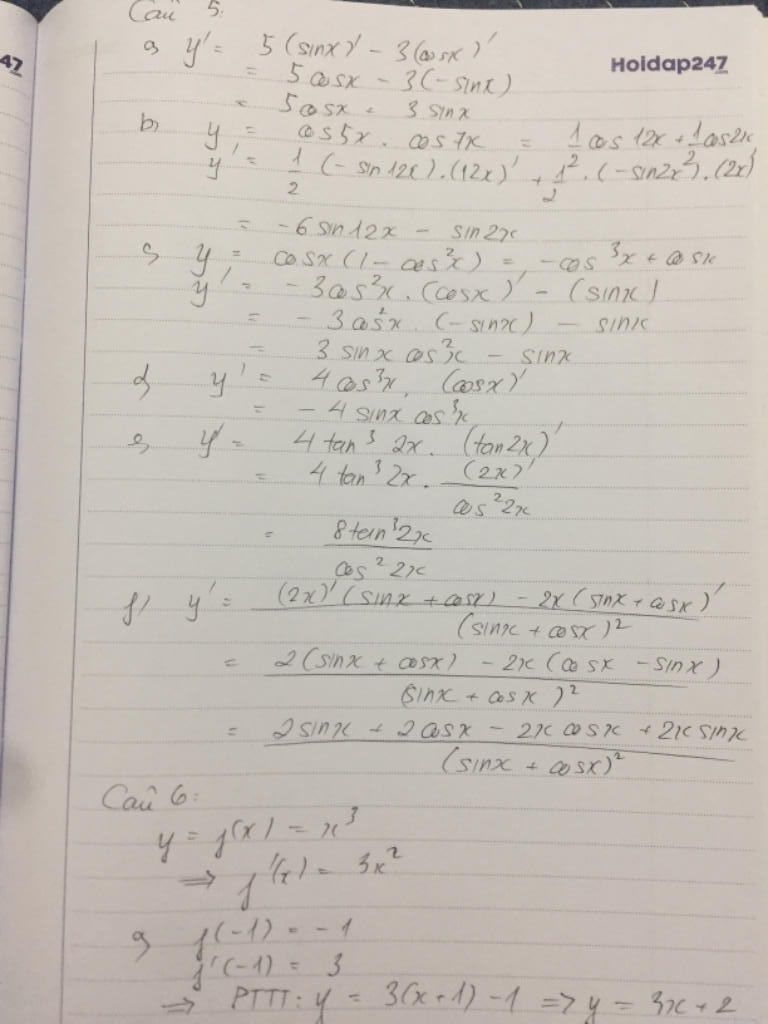 Câu 5:
a, y' = 5(sinx)' - 3(cosx)'
Hoidap247
47
= 5cosx - 3(-sinx)
= 5cosx + 3sinx
b, y = cos5x . cos7x = 1/2 cos12x + 1/2 cos2x
y' = 1/2 (-sin12x).(12x)' + 1/2 . (-sin2x).(2x)'
= -6sin12x - sin2x
c, y = cosx(1 - cos²x) = -cos³x + cosx
y' = -3cos²x . (cosx)' - (sinx)
= -3cos²x . (-sinx) - sinx
= 3sinx cos²x - sinx
d, y' = 4cos³x . (cosx)'
= -4sinx cos³x
e, y' = 4tan³2x . (tan2x)'
= 4tan³2x . (2x)'/cos²2x
= 8tan³2x/cos²2x
f, y' = (2x)'(sinx + cosx) - 2x(sinx + cosx)'/(sinx + cosx)²
= 2(sinx + cosx) - 2x(cosx - sinx)/(sinx + cosx)²
= 2sinx + 2cosx - 2xcosx + 2xsinx/(sinx + cosx)²
Câu 6:
y = f(x) = x³
=> f'(x) = 3x²
a, f(-1) = -1
f'(-1) = 3
=> PTTT: y = 3(x+1) - 1 => y = 3x + 2